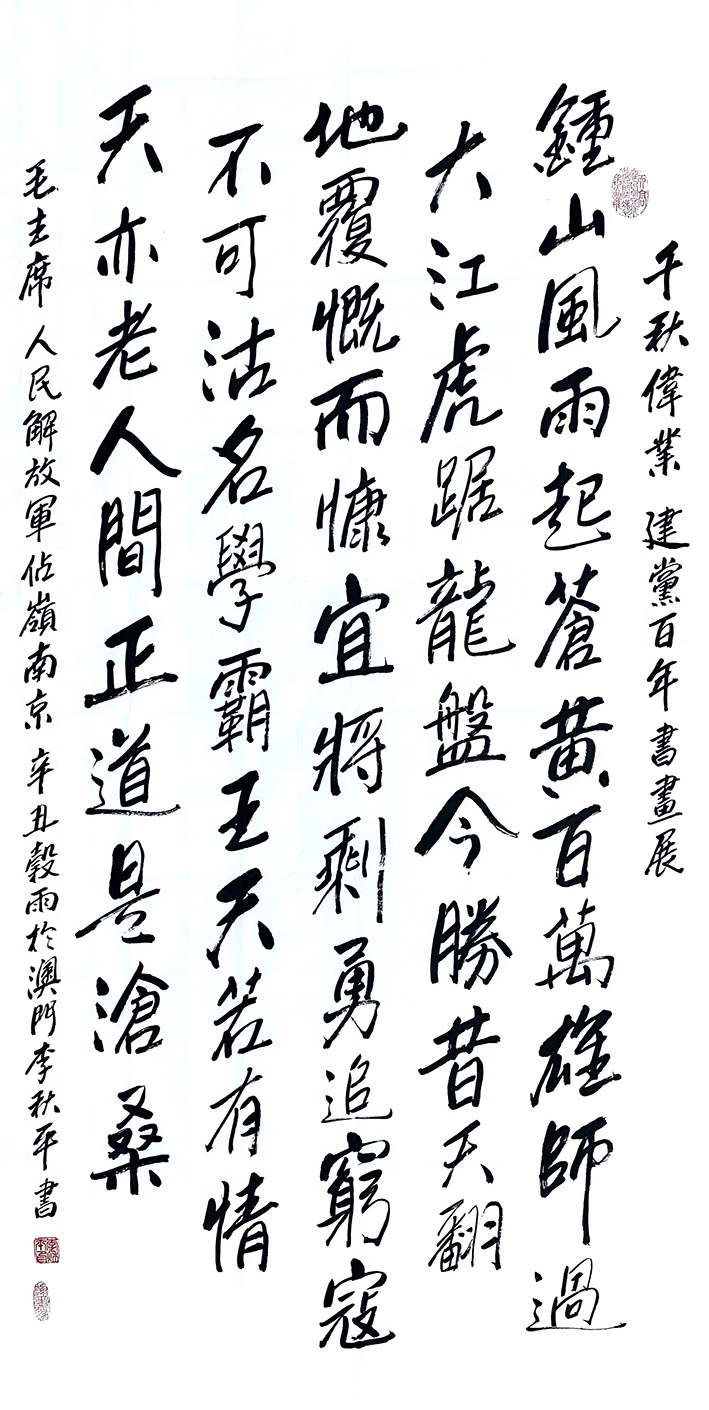 千秋偉業 建黨百年書畫展
鍾山風雨起蒼黃百萬雄師過
大江虎踞龍盤今勝昔天翻
地覆慨而慷宜將剩勇追窮寇
不可沽名學霸王天若有情
天亦老人間正道是滄桑
毛主席 人民解放軍佔嶺南京 辛丑穀雨於澳門李秋平書